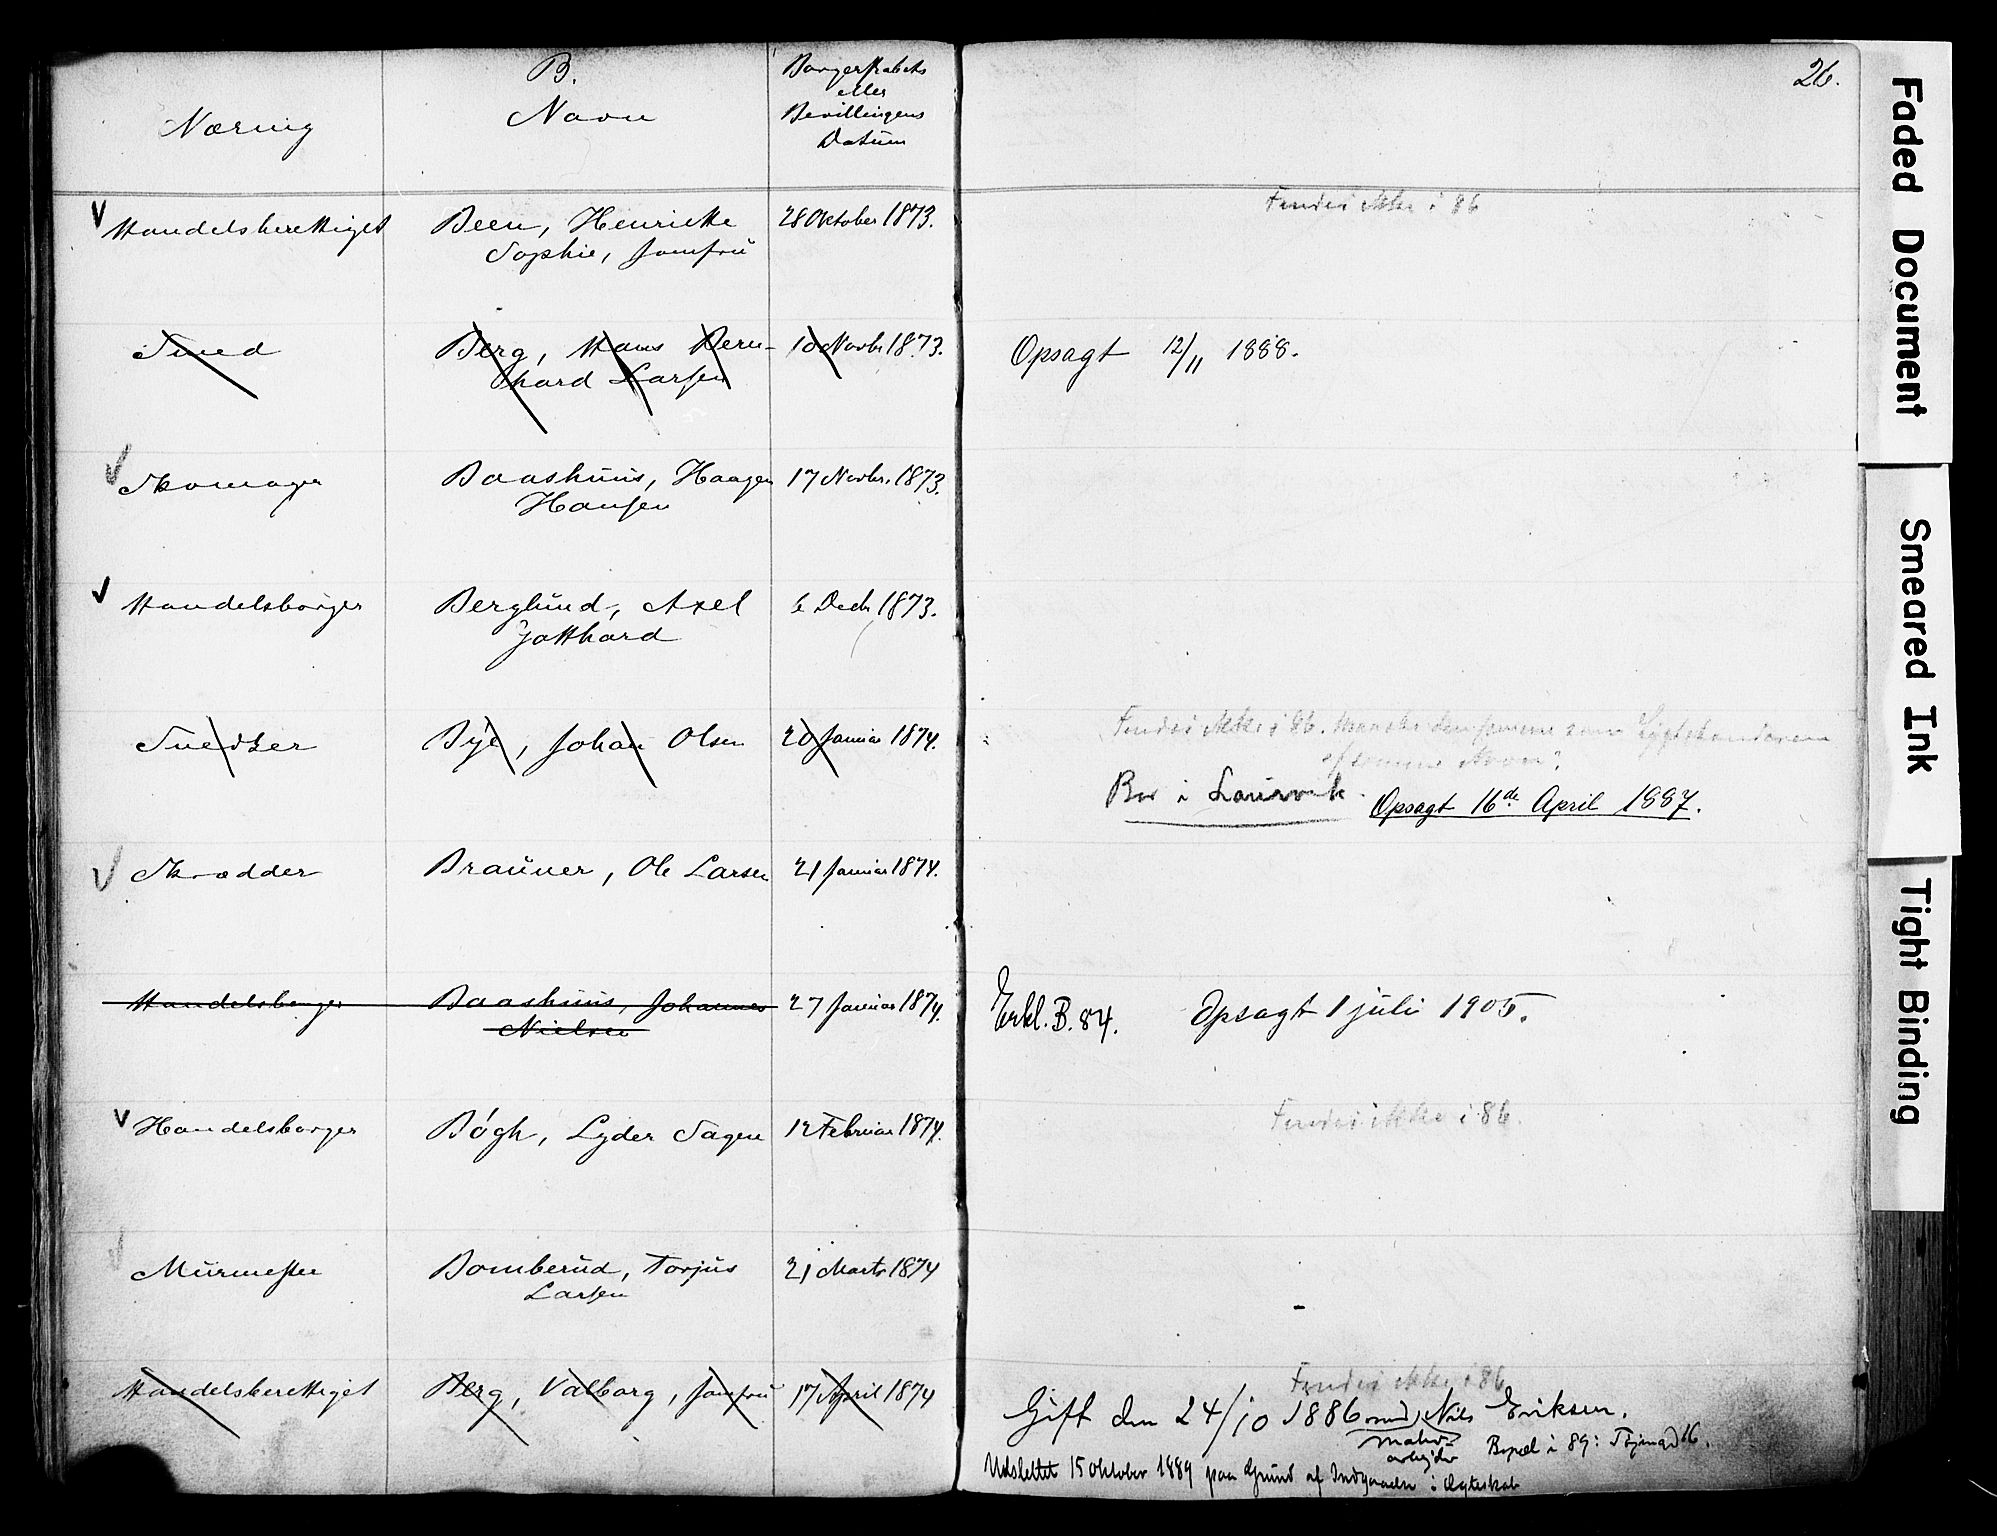 B.
26.
Næring
Navn
Borgerskabets
eller
Bevillingens
Datum
Handelsberettiget
Been, Henriette
Sophie, Jomfru
28 Oktober 1873.
Findes ikke i 86
Smed
Berg, Hans Bern-
hard Larsen
10 Novbr 1873.
Opsagt 12/11 1888.
Skomager
Baashuus, Haagen
Hansen
17 Novbr. 1873.
Handelsborger
Berglund, Axel
Gotthard
6 Decbr 1873.
Snedker
Bye, Johan Olsen
20 Januar 1874.
Findes ikke i 86. Maaske den samme som
af samme Navn?
Bor i Laurvik.
Opsagt 16de April 1887.
Skrædder
Brauner, Ole Larsen
21 Januar 1874.
Handelsborger
Baashuus, Johannes
Nielsen
27 Januar 1874.
Erkl. B. 84.
Opsagt 1 juli 1905.
Handelsborger
Bögh, Lyder Sagen
12 Februar 1874.
Findes ikke i 86.
Murmester
Bomberud, Torjus
Larsen
21 Marts 1874
Handelsberettiget
Berg, Valborg, Jomfru
17 April 1874
Findes ikke i 86
Gift den 24/10 1886 med Nils Eriksen.
arbejder
Bopæl i 89: 16.
Udslettet 15 Oktober 1889 paa Grund af Indgaaelse i Ægteskab
Faded Document
Smeared Ink
Tight Binding